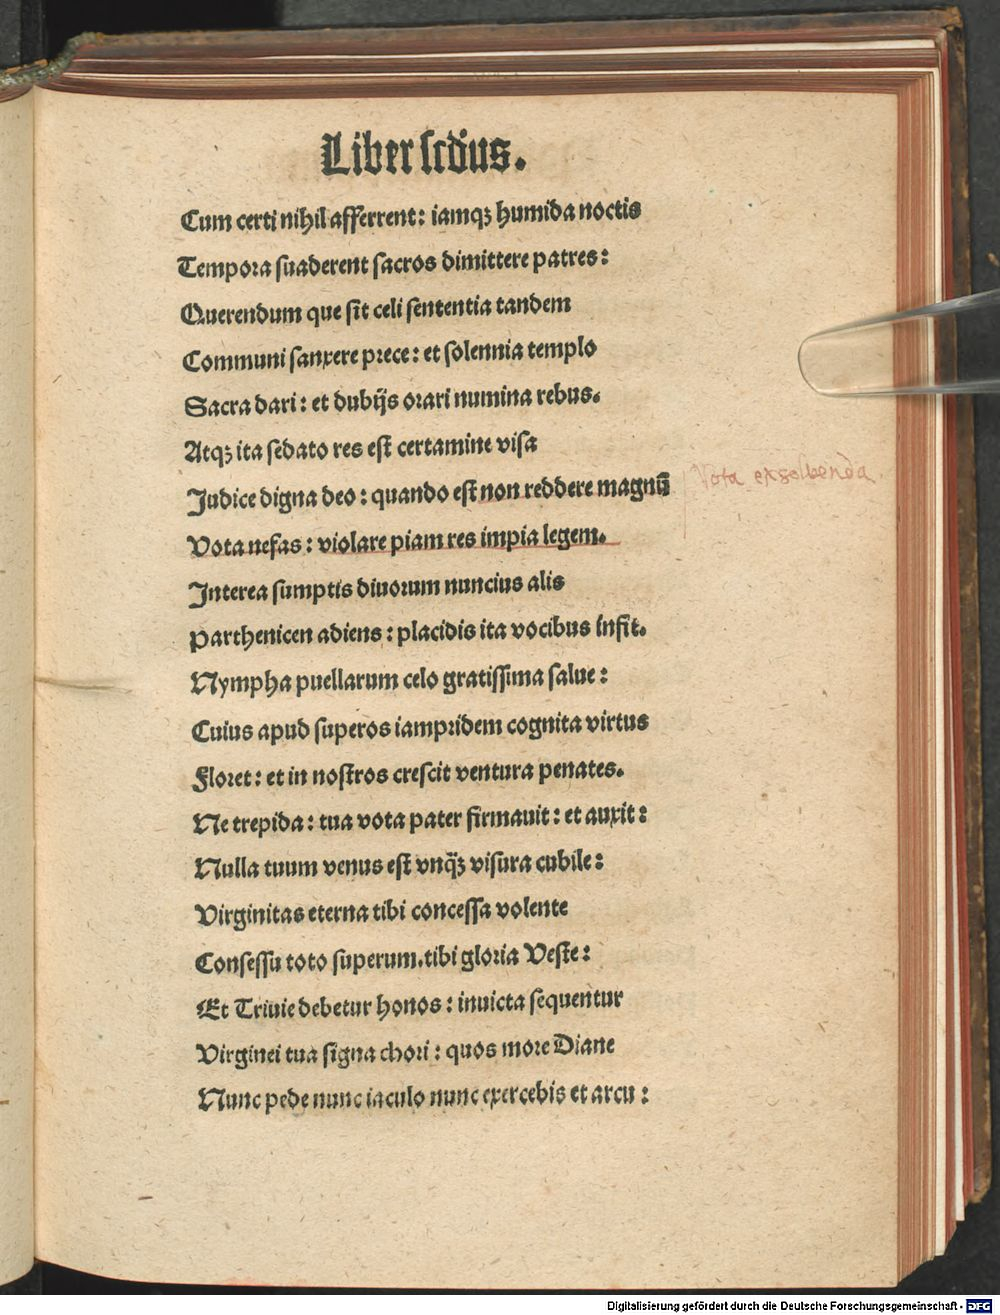 Liber scd̄us.
Cum certi nihil afferrent: iamqꝫ humida noctis
Tempora suaderent sacros dimittere patres:
Querendum que sit celi sententia tandem
Communi sanxere prece: et solennia templo
Sacra dari: et dubijs orari numina rebus.
Atqꝫ ita sedato res est certamine visa
Judice digna deo: quando est non reddere magnū
Vota exsolvenda
Vota nefas: violare piam res impia legem.
Interea sumptis diuorum nuncius alis
Parthenicen adiens: placidis ita vocibus infit.
Nympha puellarum celo gratissima salue:
Cuius apud superos iampridem cognita virtus
Floret: et in nostros crescit ventura penates.
Ne trepida: tua vota pater firmauit: et auxit:
Nulla tuum venus est vnq̄ꝫ visura cubile:
Virginitas eterna tibi concessa volente
Consessu toto superum. tibi gloria Veste:
Et Triuie debetur honos: inuicta sequentur
Virginei tua signa chori: quos more Diane
Nunc pede nunc iaculo nunc exercebis et arcu:
Digitalisierung gefördert durch die Deutsche Forschungsgemeinschaft - DFG